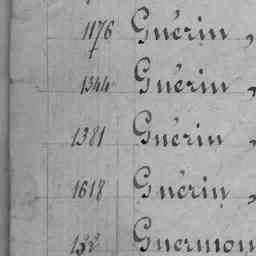 1176 Guérin,
1344 Guérin,
1381 Guérin,
1618 Guérin,
Guermon